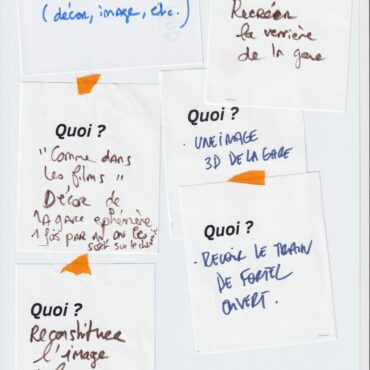 (décor, image, etc.)
Recréer
la verrière
de la gare
Quoi ?
"Comme dans
les films"
Décor de
la gare éphémère
1 fois par an on les
sort sur le
Quoi ?
- UNE IMAGE
3D DE LA GARE
Quoi ?
- REVOIR LE TRAIN
DE FORTEL
OUVERT.
Quoi ?
Reconstituer
l'image